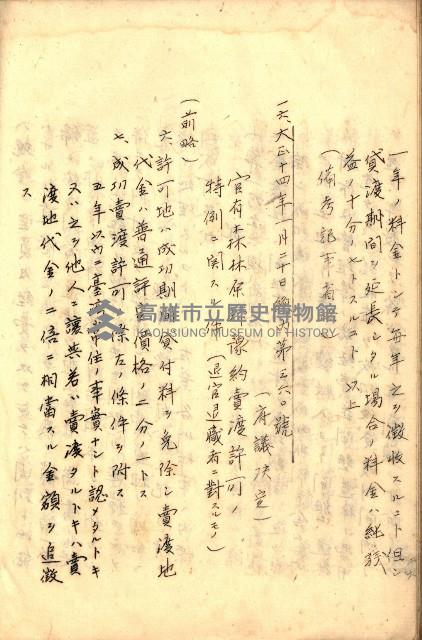 一年ノ料金トシテ毎年之ヲ徴収スルコト但シ
貸渡期間ヲ延長シタル場合ノ料金ハ純
益ノ十分ノ七トスルコト以上
(備考記事省略)
一六、大正十四年一月二十日 第三六〇號
(府議決定)
官有森林原野豫約賣渡許可ノ
特例ニ関スル件(退官退職者ニ對スルモノ)
(前略)
六、許可地ハ成功期間貸付料ヲ免除シ賣渡地
代金ハ普通評定價格ノ二分ノ一トス
七、成功賣渡許可ノ條件左ノ條件ヲ附ス
五年以内ニ臺 住ノ事實ナシト認メタルトキ
又ハ之ヲ他人ニ讓與若ハ賣渡タルトキハ賣
渡地代金ノ二倍ニ相當スル金額ヲ追徴
ス
高雄市立歷史博物館
KAOHSIUNG MUSEUM OF HISTORY